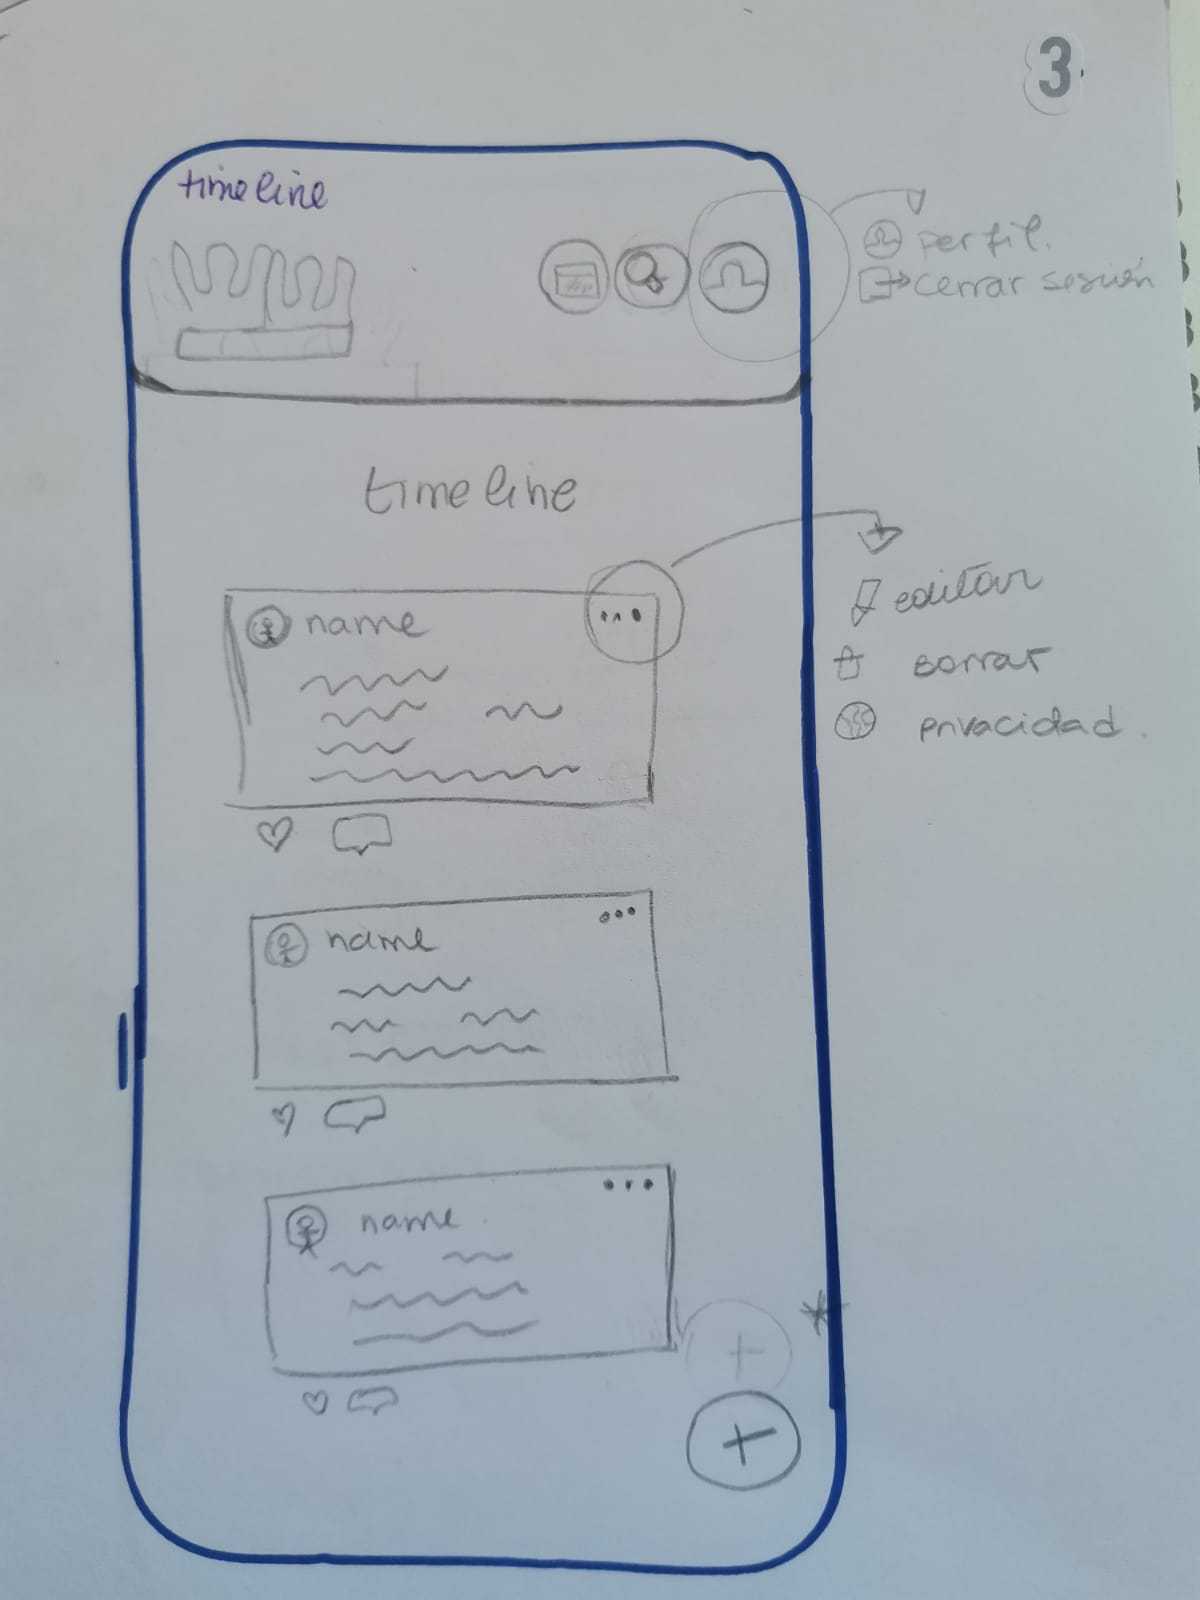 3
timeline
perfil.
cerrar sesión
timeline
name
editar
borrar
privacidad.
name
name